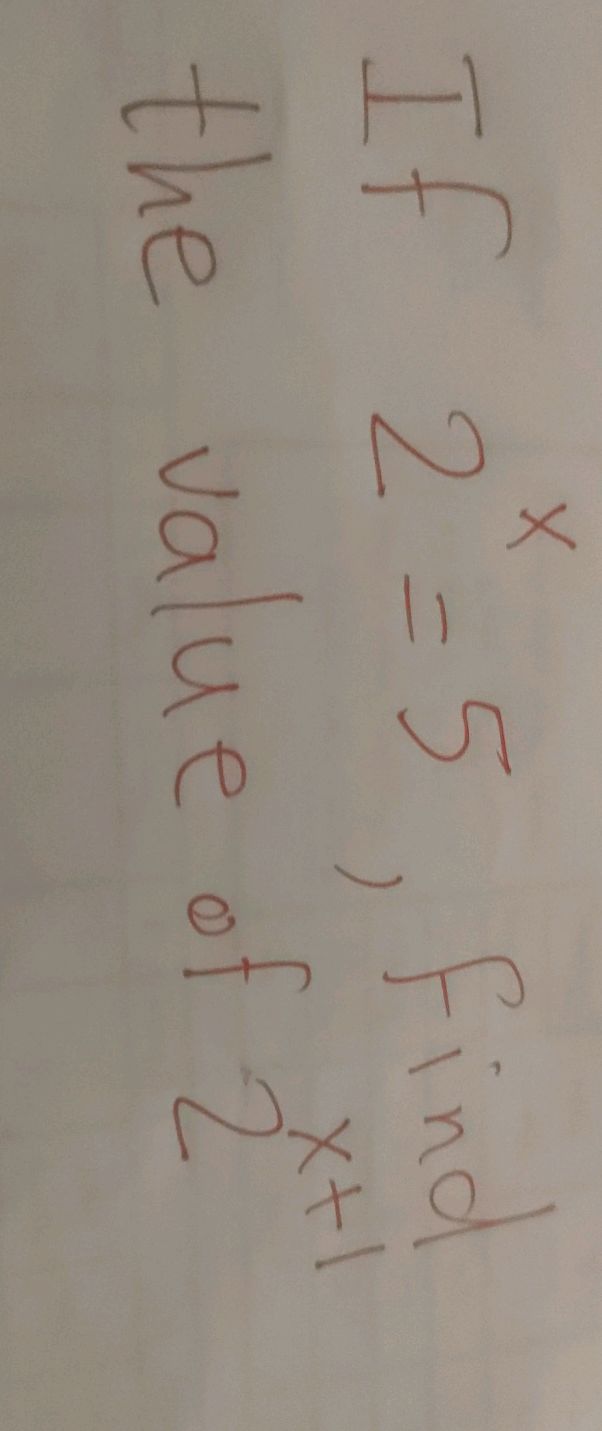 If 2^x = 5, find
the value of 2^x+1